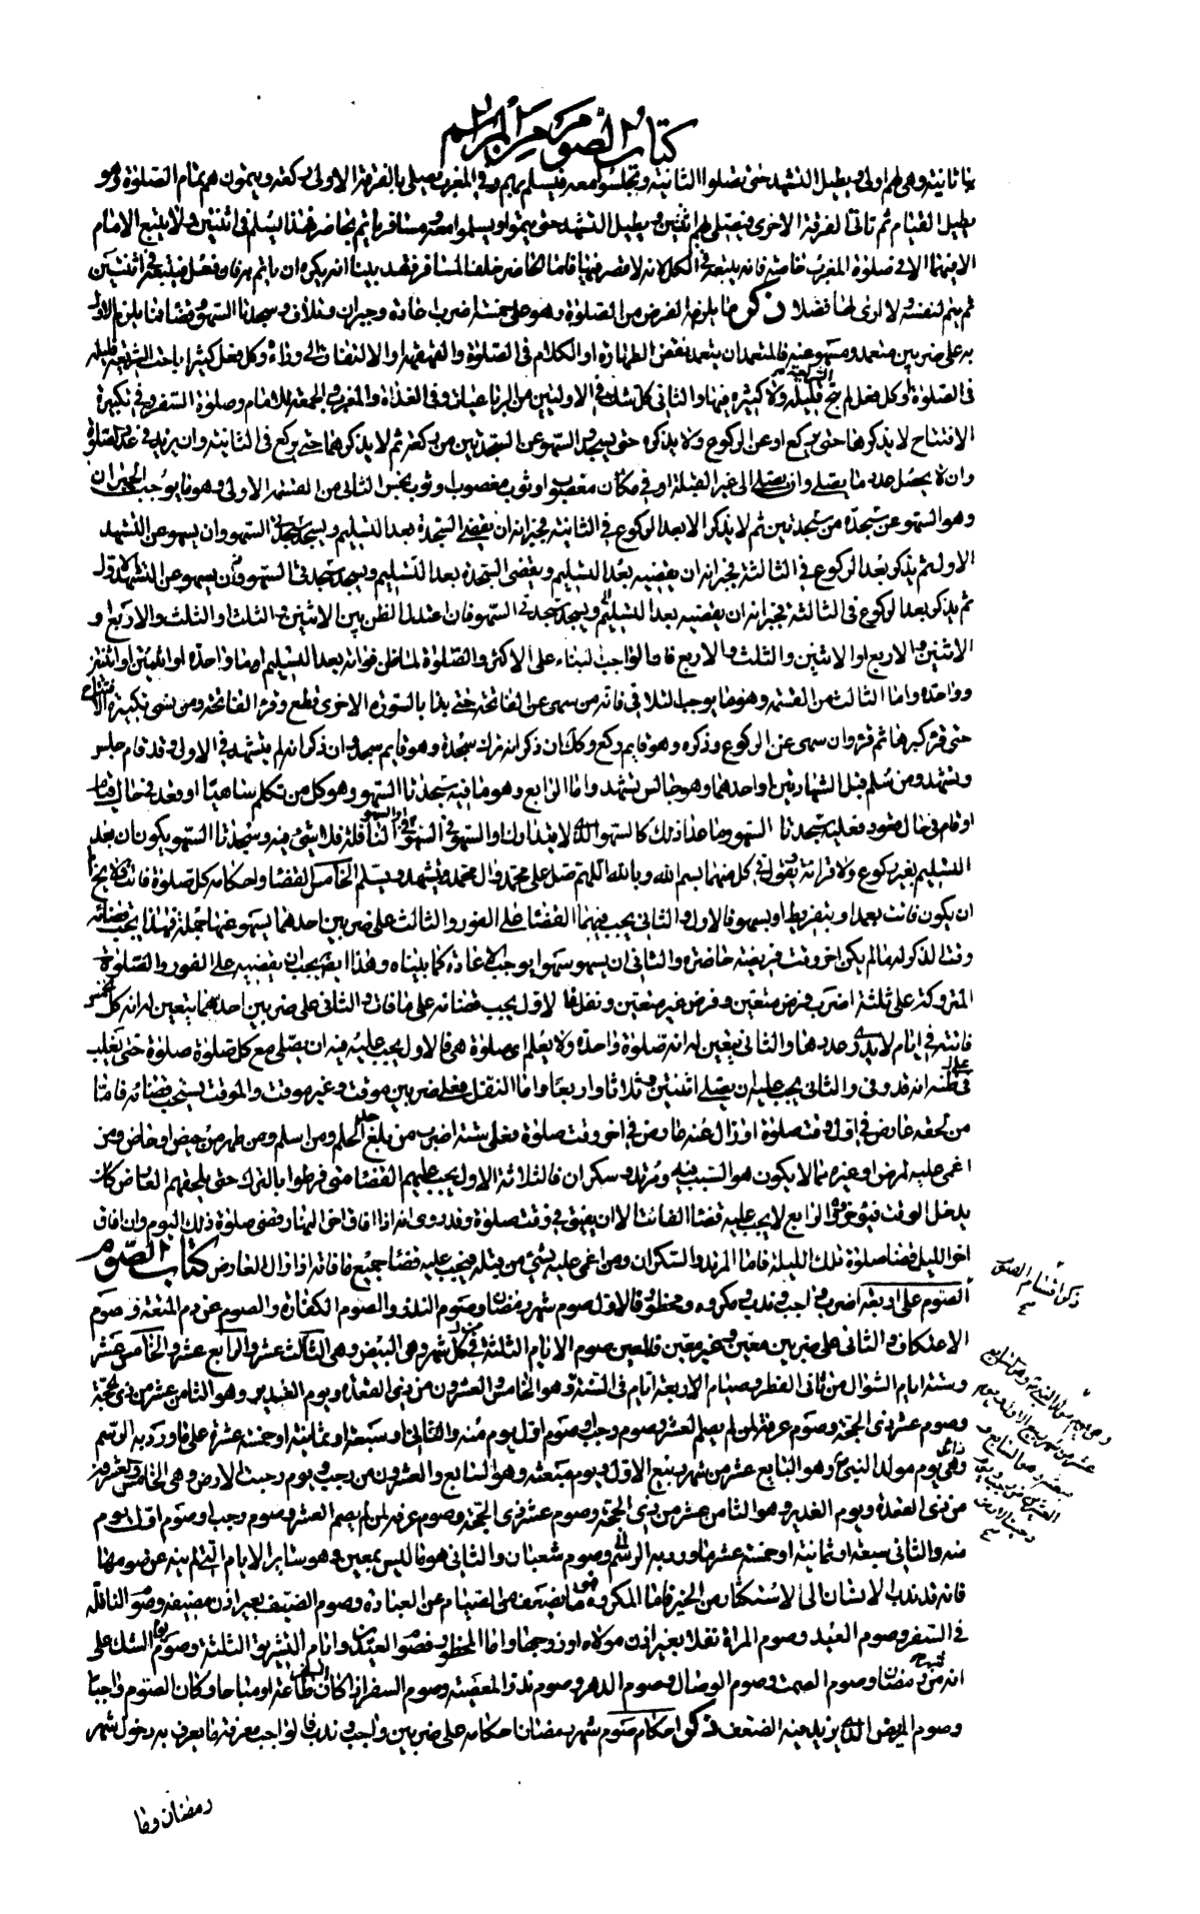 كتاب الصوم من المراسم
ثانية وهي لهم اولى ويطيل التشهد حتى يصلوا الثانية ويجلسوا معه فيسلم بهم وفي المغرب يصلي بالفرقة الاولى ركعة ويتمون هم تمام الصلوة وهو
يطيل القيام ثم تاتي الفرقة الاخرى فيصلي بهم اثنتين ويطيل التشهد حتى يتموا ويسلموا معه ومسافر ياتم بحاضر فهذا يسلم في اثنتين ولا يتبع الامام
الا فيهما الا في صلوة المغرب خاصة فانه يتبعه في الكل لانه لا قصر فيها فاما الحاضر خلف المسافر فقد بينا انه يكره ان ياتم به فان فعل فيتبعه في اثنتين
ثم يتم لنفسه ولا ارى لهذا فضلا ذكر ما يلزم المفرض من الصلوة وهو على خمسة اضرب اعادة وجبران وتلاف وسجدتا السهو وقضا فما يلزم الاول
به على ضربين متعمد ومسهو عنه فالمتعمد ان يتعمد نقض الطهارة او الكلام في الصلوة والقهقهة او الالتفات الى وراء وكل فعل كثير اباحت الشريعة قليله
في الصلوة وكل فعل لم تبح الشريعة قليله ولا كثيره فيها والثاني كل شك في الاولتين من الرباعيات وفي الغداة والمغرب والجمعة للامام وصلوة السفر وفي تكبيرة
الافتتاح لا يذكرها حتى يركع او عن الركوع ولا يذكره حتى يسجد والسهو عن السجدتين من ركعة ثم لا يذكرهما حتى يركع في الثانية وان يزيد في عدد الصلوة
وان لا يحصل عدد ما يصلي وان يصلي الى غير القبلة او في مكان مغصوب او ثوب مغصوب او ثوب نجس الثاني من القسمة الاولى وهو ما يوجب الجبران
وهو السهو عن سجدة من سجدتين ثم لا يذكر الا بعد الركوع في الثانية فجبرانه ان يقضي السجدة بعد التسليم ويسجد سجدتي السهو وان يسهو عن التشهد
الاول ثم يذكر بعد الركوع في الثالثة فجبرانه ان يقضيه بعد التسليم ويقضي السجدة بعد التسليم ويسجد سجدتي السهو وان يسهو عن التشهد الاول
ثم يذكر بعد الركوع في الثالثة فجبرانه ان يقضيه بعد التسليم ويسجد سجدتي السهو فان اعتدل الظن بين الاثنتين والثلث والثلث والاربع او
الاثنتين والاربع او الاثنتين والثلث والاربع فالواجب البناء على الاكثر والصلوة لما ظن فواته بعد التسليم اما واحدة او اثنتين او اثنتين
وواحدة واما الثالث من القسمة وهو ما يوجب التلافي فانه من سهى عن الفاتحة حتى بدا بالسورة الاخرى قطع وقرء الفاتحة ومن نسى تكبيرة الافتتاح
حتى قرء كبرها ثم قرء وان سهى عن الركوع وذكره وهو قايم ركع وكل ان ذكر انه ترك سجدة وهو قايم سجد وان ذكر انه لم يتشهد في الاول وقد قام جلس
وتشهد ومن سلم قبل الشهادتين او احدهما وهو جالس يتشهد واما الرابع وهو ما فيه سجدتا السهو وهو كل من تكلم ساهيا او قعد في حال قيام
او قام في حال قعود فعليه سجدتا السهو وما عدا ذلك كالسهو الذي لا يتدارك والسهو في السهو او السهو في النافلة فلا شئ فيه وسجدتا السهو يكونان بعد
التسليم بغير ركوع ولا قراءة ويقول في كل منهما بسم الله وبالله اللهم صل على محمد وال محمد ويتشهد ويسلم الخامس القضا واحكامه كل صلوة فاتت فلا يخ
ان يكون فاتت بعمد او بتفريط او بسهو فالاول والثاني يجب فيهما القضا على الفور والثالث على ضربين احدهما يسهو عنها جملة فهذا يجب قضائه
وقت الذكر له ما لم يكن اخر وقت فريضة حاضرة والثاني ان يسهو سهوا يوجب الاعادة كما بيناه وهذا ايضا يجب ان يقضيه على الفور والصلوة
المتروكة على ثلثة اضرب فرض متعين وفرض غير متعين ونفل فالاول يجب قضائه على ما فات والثاني على ضربين احدهما يتعين له انه كل خمس
فائتة في ايام لا يدري عددها والثاني يتعين له انه صلوة واحدة ولا يعلم اي صلوة هي فالاول يجب عليه فيه ان يصلي مع كل صلوة صلوة حتى يغلب
على ظنه انه قد وفى والثاني يجب عليه ان يصلي اثنتين وثلاثا واربعا واما النفل فعلى ضربين موقت وغير موقت والموقت يستحب قضائه فاما
من لحقه عارض في اول وقت صلوة او زال عنه عارض في اخر وقت صلوة فعلى ستة اضرب من بلغ الحلم ومن اسلم ومن طهر من حيض او حاض ومن
اغمى عليه لمرض او غيره مما لا يكون هو السبب فيه ومرتد وسكران فالثلاثة الاول يجب عليهم القضا متى فرطوا بالترك حتى يلحقهم العارض كان
يدخل الوقت فيؤخر والرابع لا يجب عليه قضا الفائت الا ان يفيق في وقت صلوة وقد روى انه اذا افاق اخر النهار قضى صلوة ذلك اليوم وان افاق
اخر الليل قضا صلوة تلك الليلة فاما المرتد والسكران ومن اغمى عليه بشئ من قبله فيجب عليه قضا جميع ما فاته اذا زال العارض كتاب الصوم
الصوم على اربعة اضرب واجب وندب ومكروه ومحظور فالاول صوم شهر رمضان وصوم النذر والصوم الكفارة والصوم عن دم المتعة وصوم
الاعتكاف والثاني على ضربين معين وغير معين فالمعين صوم الايام الثلثة في كل شهر وهي البيض وهي الثالث عشر والرابع عشر والخامس عشر
وستة ايام الشوال من ثاني الفطر وصيام الاربعة ايام في السنة وهو الخامس والعشرون من ذي القعدة ويوم الغدير وهو الثامن عشر من ذي الحجة
وصوم عشر ذي الحجة وصوم عرفة لمن لم يصم العشر وصوم رجب وصوم اول يوم منه والثاني او سبعة او ثمانية او خمسة عشرة على ما ورد به الرسم
وهي يوم مولد النبي وهو السابع عشر من شهر ربيع الاول ويوم مبعثه وهو السابع والعشرون من رجب ويوم دحيت الارض وهي الخامس والعشرون
من ذي القعدة ويوم الغدير وهو الثامن عشر من ذي الحجة وصوم عشر ذي الحجة وصوم عرفة لمن لم يصم العشر وصوم رجب وصوم اول يوم
منه والثاني سبعة او ثمانية او خمسة عشر ما ورد به الرسم وصوم شعبان والثاني هو ما ليس بمعين وهو ساير الايام التي لم ينه عن صومها
فانه قد ندب الانسان الى الاستكثار من الخير فاما المكروه فهو ما يضعف من الصيام عن العبادة وصوم الضيف بغير اذن مضيفه وصوم النافلة
في السفر وصوم العبد وصوم المراة نفلا بغير اذن مولاه او زوجها واما المحظور فصوم العيدين وايام التشريق الثلثة وصوم يوم الشك على
انه من رمضان وصوم الصمت وصوم الوصال وصوم الدهر وصوم نذر المعصية وصوم السفر اذا كان السفر طاعة او مباحا وكان الصوم واجبا
وصوم المريض الذي يزيد فيه الضعف ذكر احكام صوم شهر رمضان احكامه على ضربين واجب وندب فالواجب معرفة ما يعرف به دخول شهر
ذكر اقسام الصوم
رمضان وما